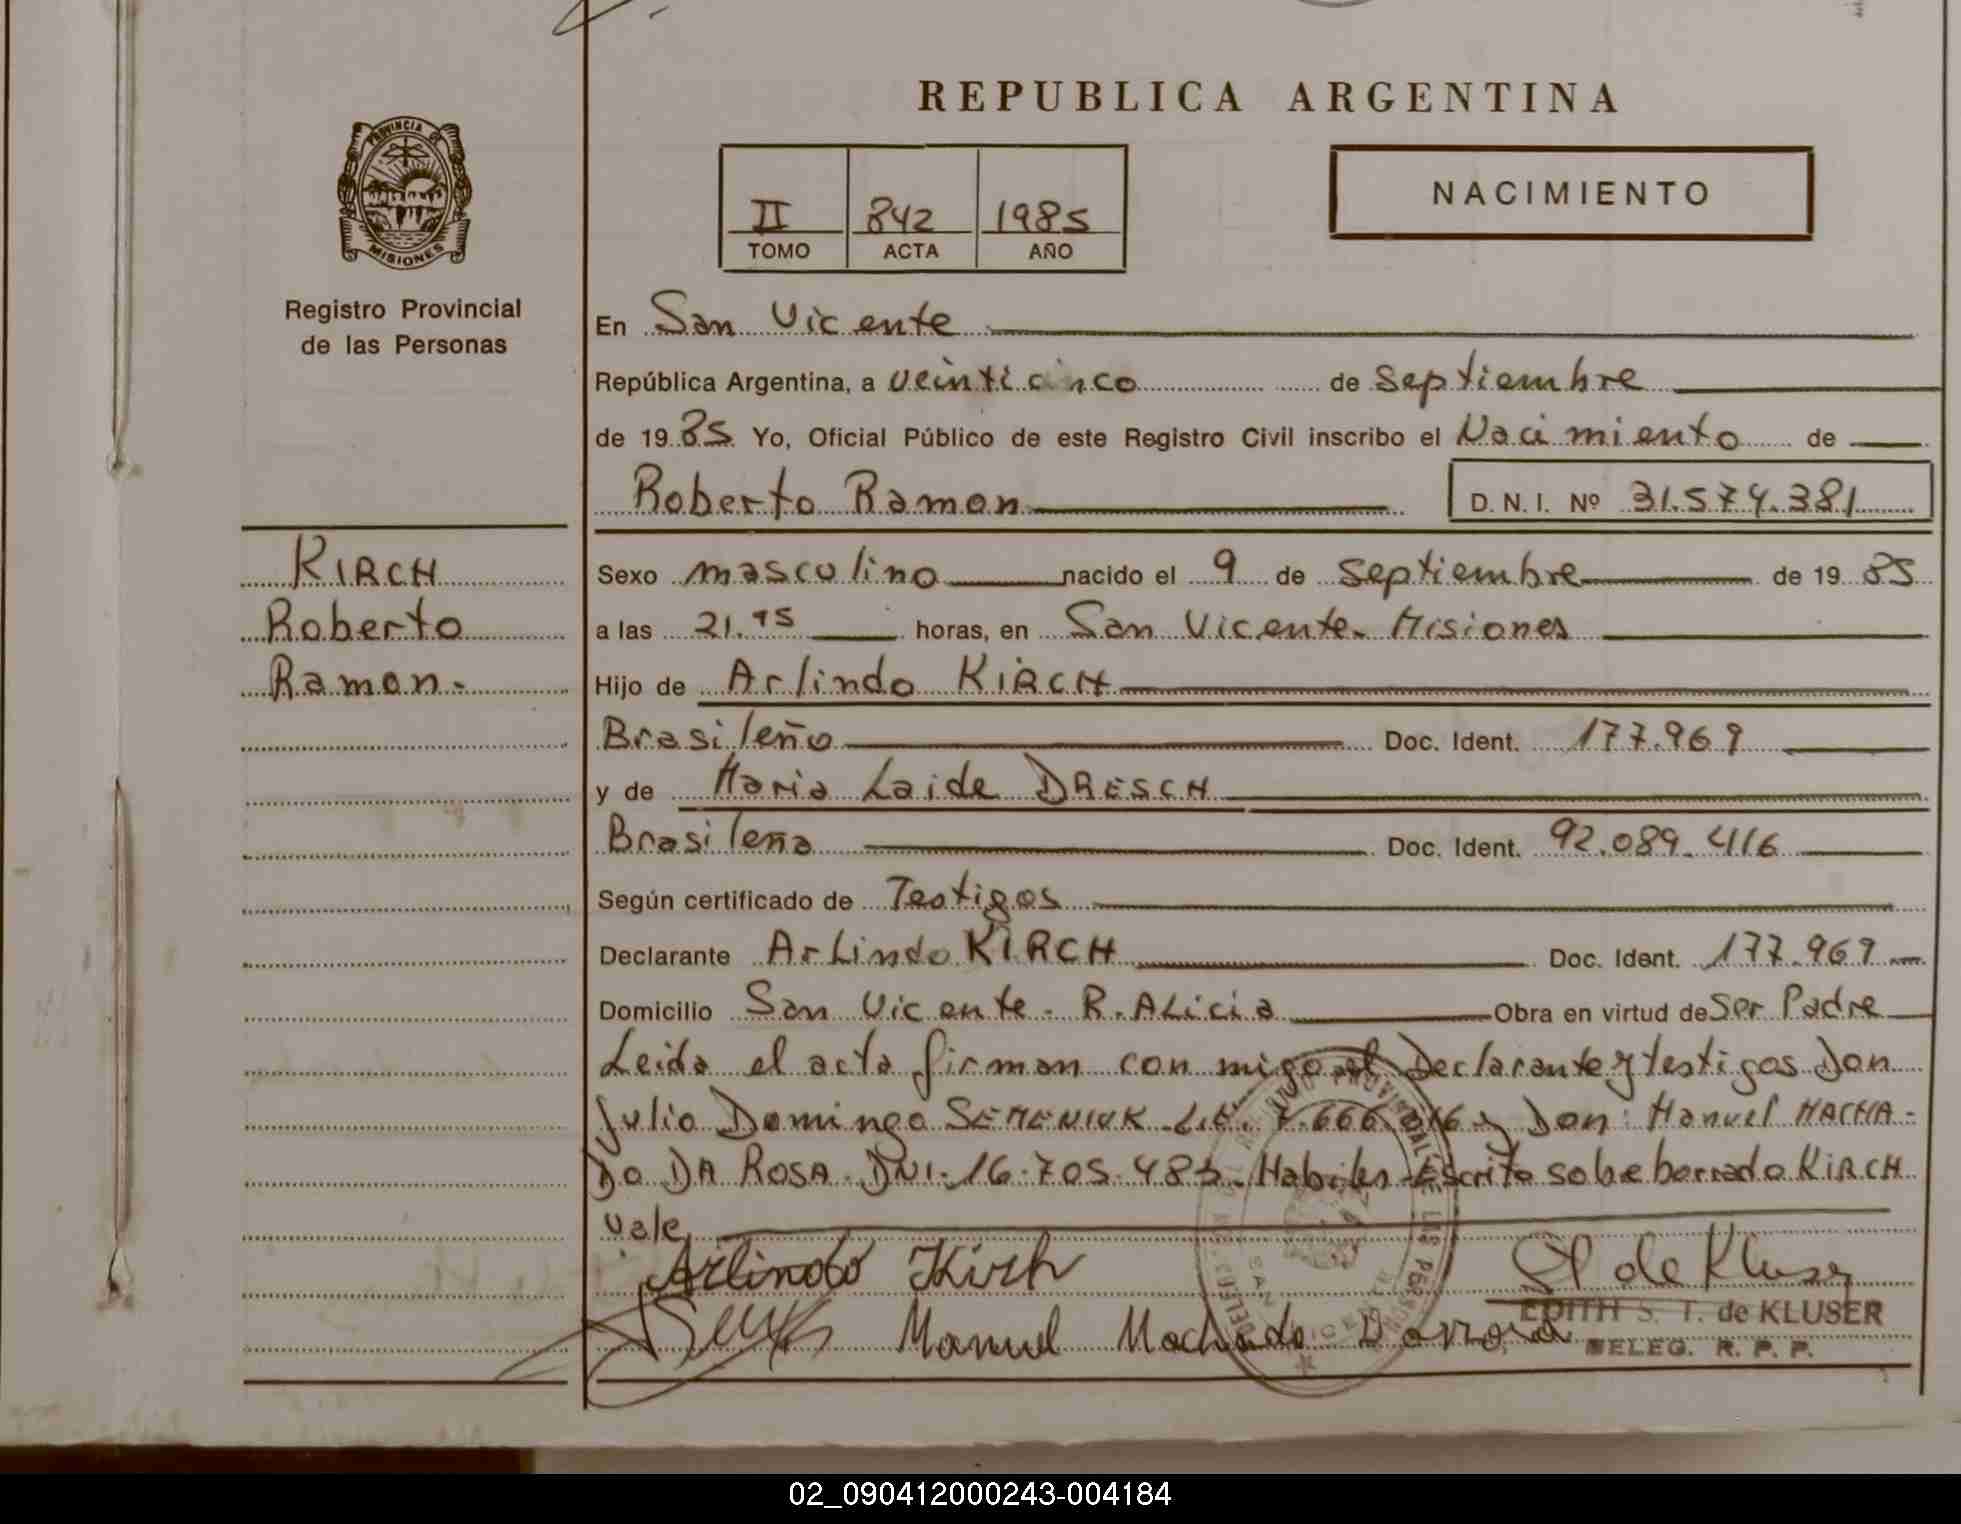 REPUBLICA ARGENTINA
PROVINCIA DE
MISIONES
Registro Provincial
de las Personas
II 842 1985
TOMO ACTA AÑO
NACIMIENTO
En San Vicente
República Argentina, a veinticinco de Septiembre
de 1985 Yo, Oficial Público de este Registro Civil inscribo el Nacimiento de
Roberto Ramon D.N.I. Nº 31.574.381
KIRCH
Roberto
Ramon.-
Sexo masculino nacido el 9 de Septiembre de 1985
a las 21.15 horas, en San Vicente. Misiones
Hijo de Arlindo KIRCH
Brasileño Doc. Ident. 177.969
y de Maria Laide DRESCH
Brasileña Doc. Ident. 92.089.416
Según certificado de Testigos
Declarante Arlindo KIRCH Doc. Ident. 177.969
Domicilio San Vicente - R. Alicia Obra en virtud de Ser Padre
Leida el acta firman con migo el Declarante y testigos Don
Julio Domingo SEMENIUK L.E. 7.666.016 y Don: Manuel MACHA-
DO DA ROSA. DNI. 16.705.483. Habiles Escrito sobe borrado KIRCH
Vale
Arlindo Kirch
de Kluser
Manuel Machado Darrosa
EDITH S. T. de KLUSER
DELEG. R. P. P.
02_090412000243-004184